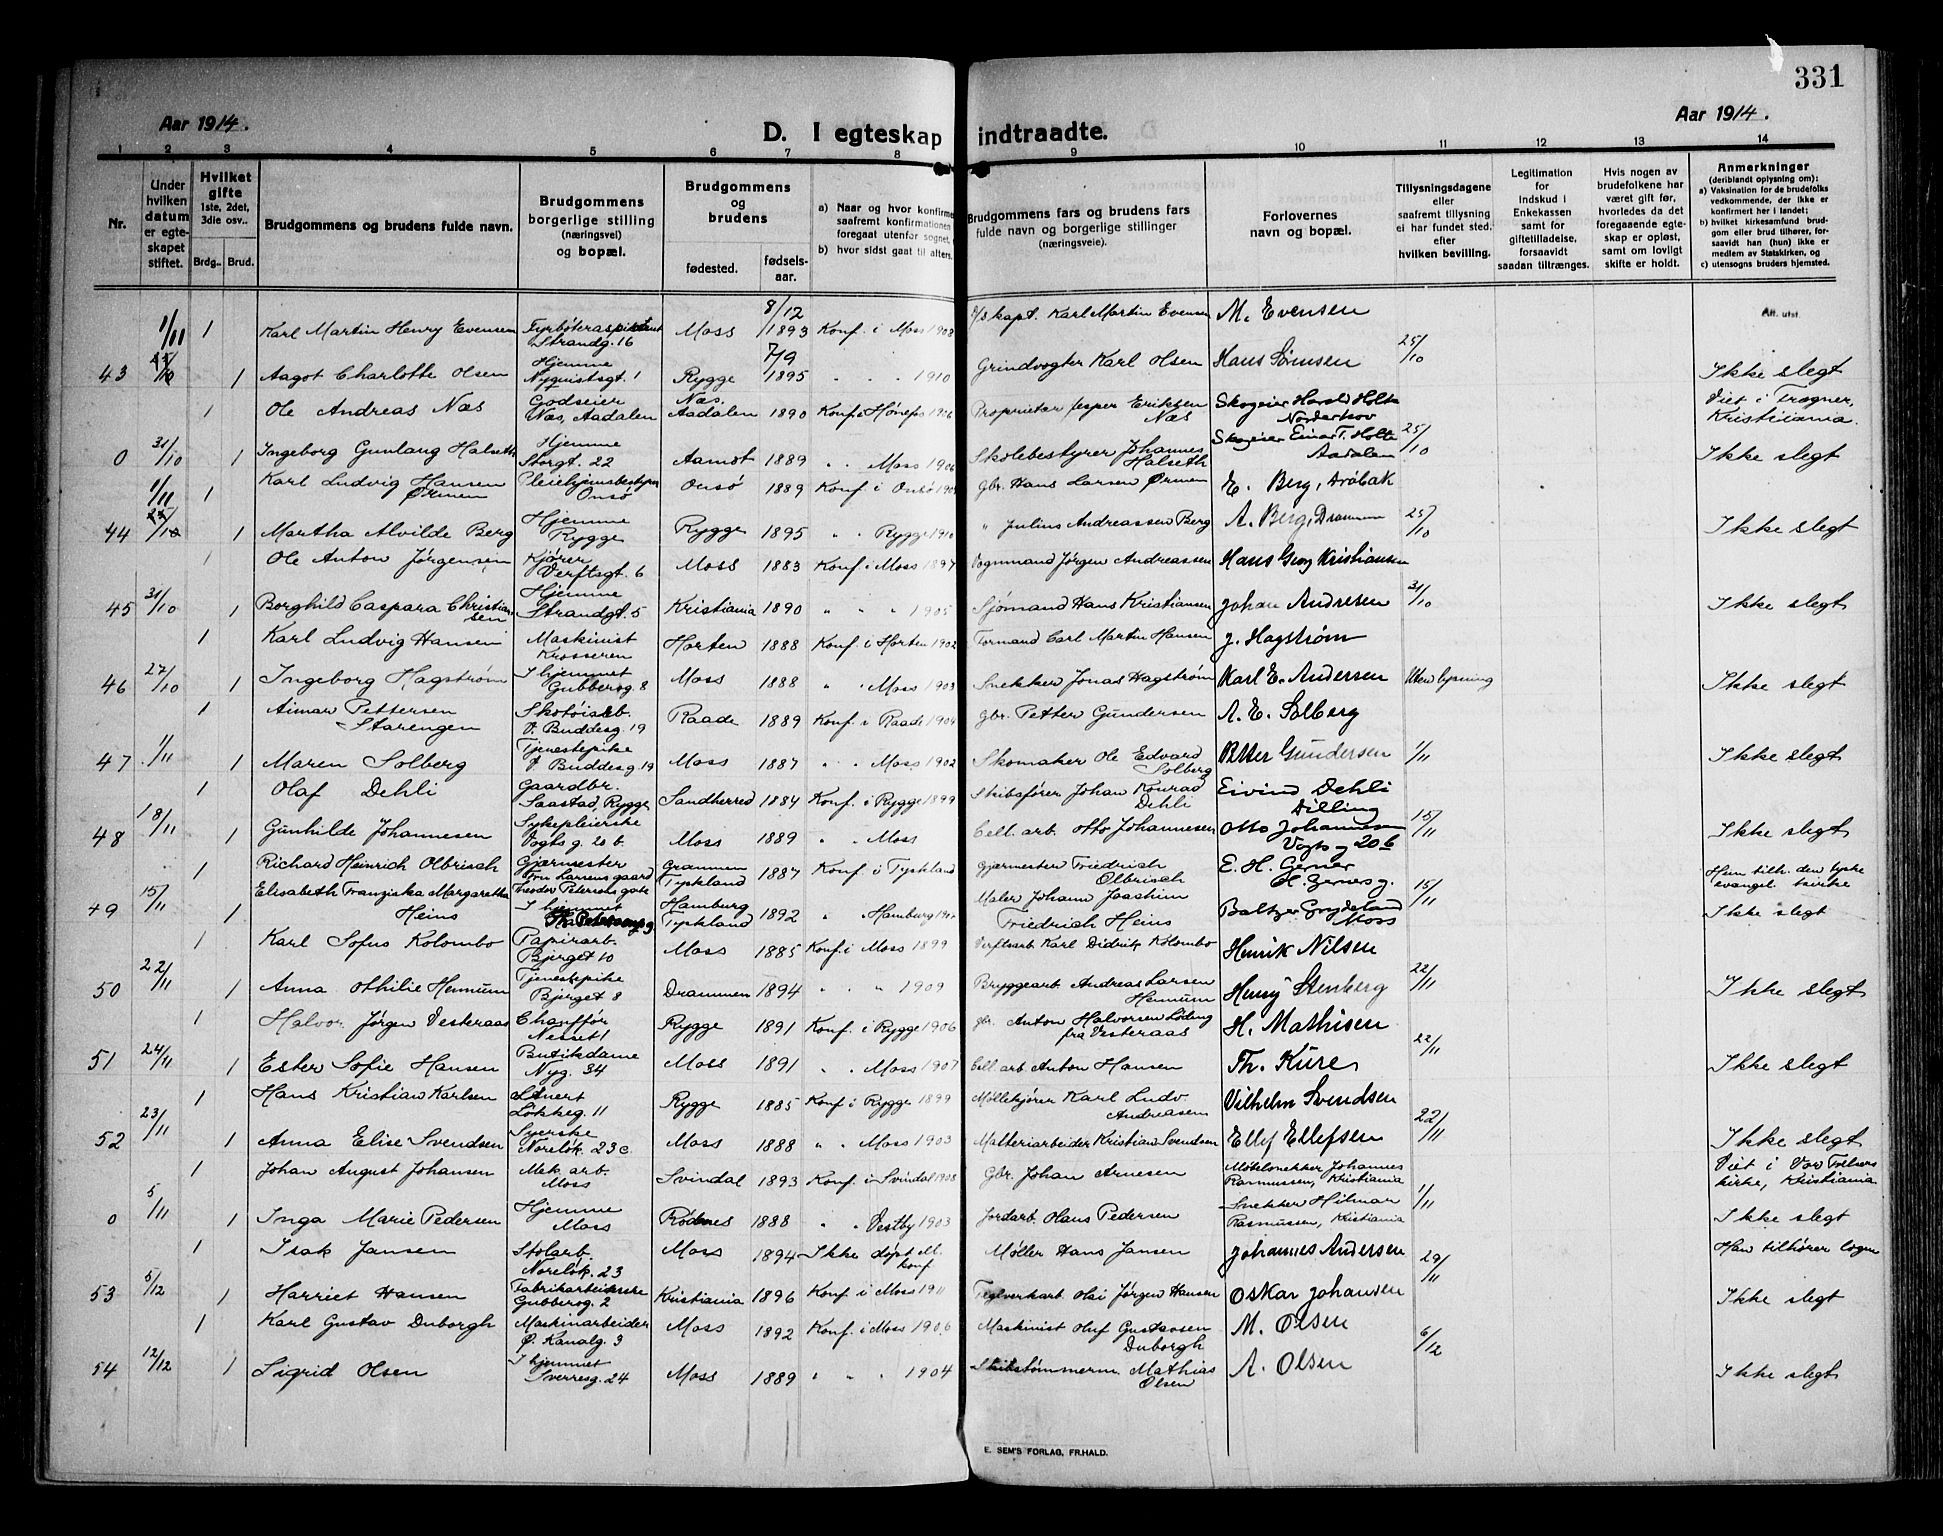 331
Aar 1914.
D. I egteskap indtraadte.
Aar 1914.
1 2 3 4 5 6 7 8 9 10 11 12 13 14
Nr.
Under hvilken datum er egteskapet stiftet.
Hvilket gifte 1ste, 2det, 3die osv..
Brdg.. Brud.
Brudgommens og brudens fulde navn.
Brudgommens borgerlige stilling (næringsvei) og bopæl.
Brudgommens og brudens
fødested. fødselsaar.
a) Naar og hvor konfirme saafremt konfirmationen foregaat utenfor sognet,
b) hvor sidst gaat til alters.
Brudgommens fars og brudens fars fulde navn og borgerlige stillinger (næringsveie).
Forlovernes navn og bopæl.
Tillysningsdagene eller saafremt tillysning ei har fundet sted. efter hvilken bevilling.
Legitimation for Indskud i Enkekassen samt for giftetilladelse, forsaavidt saadan tiltrænges.
Hvis nogen av brudefolkene har været gift før, hvorledes da det foregaaende egteskap er opløst, samt om lovligt skifte er holdt.
Anmerkninger (deriblandt oplysning om): a) Vaksination for de brudefolks vedkommende, der ikke er konfirmert her i landet; b) hvilket kirkesamfund brudgom eller brud tilhører, forsaavidt han (hun) ikke er medlem av Statskirken, og c) utensogns bruders hjemsted.
1/11 1 Karl Martin Henry Evensen Strandg. 16 Moss 8/12 1893 Konf. i Moss 1908 Karl Martin Evensen M. Evensen Att. utst.
43 1 Aagot Charlotte Olsen Hjemme Nyquistsgt. 1 Rygge 7/9 1895 " " 1910 Grindvogter Karl Olsen Hans Sørnsen 25/10 Ikke slegt
1 Ole Andreas Næs Godseier Næs, Aadalen Næs. Aadalen 1890 Konf. i Hønefos 1906 Proprietær Jesper Eriksen Næs Skogeier Harald Holte Norderhov Viet i Frogner, Kristiania.
0 31/10 1 Ingeborg Gunlaug Halseth Hjemme Storgt. 22 Aamot 1889 " " Moss 1906 Skolebestyrer Johannes Halseth Skogeier Einar T. Holte Aadalen 25/10 Ikke slegt
1/11 1 Karl Ludvig Hansen Ørmen Pleiehjemsbestyrer Onsø Onsø 1889 Konf. i Onsø Gbr. Hans Larsen Ørmen E. Berg, Drøbak
44 1 Martha Alvilde Berg Hjemme Rygge Rygge 1895 " " Rygge 1910 " Julius Andreassen Berg A. Berg, Drammen 25/10 Ikke slegt
1 Ole Anton Jørgensen Kjører Verftsgt. 6 Moss 1883 Konf. i Moss 1897 Vognmand Jørgen Andreassen Hans Georg Kristiansen
45 31/10 1 Borghild Caspara Christiansen Hjemme Strandgt. 5 Kristiania 1890 " " 1905 Sjømand Hans Kristiansen Johan Andresen 31/10 Ikke slegt
1 Karl Ludvig Hansen Maskinist Krosseren Horten 1888 Konf. i Horten 1902 Tormand Carl Martin Hansen J. Hagstrøm
46 27/10 1 Ingeborg Hagstrøm I hjemmet Gubberog. 8 Moss 1888 " " Moss 1903 Snekker Jonas Hagstrøm Karl E. Andersen Uten lysning Ikke slegt
1 Aimar Pettersen Starengen Skotøiarb. V. Buddesg. 19 Raade 1889 Konf. i Raade 1904 Gbr. Petter Gundersen A. E. Solberg
47 1/11 1 Maren Solberg Tjenestepike V. Buddesg. 19 Moss 1887 " " Moss 1902 Skomaker Ole Edvard Solberg Petter Gundersen 1/11 Ikke slegt
1 Olaf Dehli Gaardbr. Saastad, Rygge Sandherred 1884 Konf. i Rygge 1899 Skibsfører Johan Konrad Dehli Eivind Dehli Dilling
48 18/11 1 Gunhilde Johannesen Sykepleierske Vogts g. 20 b. Moss 1889 " " Moss Cell. arb. Otto Johannesen Otto Johannesen Vogts g 20 b 15/11 Ikke slegt
1 Richard Heinrich Olbrisch Gjærmester Fru Larsens gaard Theodor Petersens gate Tyskland 1887 Konf. i Tyskland Gjærmester Friedrich Olbrisch E. H. Gerner H. Gernes g. Hun tilh. den tyske evangel. kirke
49 15/11 1 Elisabeth Franziska Margaretha Heins I hjemmet Hamburg Tyskland 1892 " Hamburg Maler Johann Joachim Friedrich Heins Baltzer Grydeland Moss 15/11 Ikke slegt
1 Karl Sofus Kolombo Papirarb. Bjerget 10 Moss 1885 Konf. i Moss 1899 Verftsarb. Karl Didrik Kolombo Henrik Nilsen
50 22/11 1 Anna Othilie Hennum Tjenestepike Bjerget 8 Drammen 1894 " " 1909 Bryggearb Andreas Larsen Hennum Henry Stenberg 22/11 Ikke slegt
1 Halvor Jørgen Vesteraas Chauffør Nesset 1 Rygge 1891 Konf. i Rygge 1906 Gbr. Anton Halvorsen fra Vesteraas H. Mathisen
51 24/11 1 Ester Sofie Hansen Butikdame Nyg. 34 Moss 1891 " " Moss 1907 Cell arb Anton Hansen Th. Kure 22/11 Ikke slegt
1 Hans Kristian Karlsen Løkkeg. 11 Rygge 1885 Konf. i Rygge 1899 Møllekjører Karl Ludv Andreasen Vilhelm Svendsen
52 23/11 1 Anna Elise Svendsen Syerske Noreløk. 23 c. Moss 1888 " " Moss 1903 Malteriarbeider Kristian Svendsen Ellef Ellefsen 22/11 Ikke slegt
1 Johan August Johansen Mek. arb. Moss Svindal 1893 Konf. i Svindal 1908 Gbr. Johan Arnesen Møbelsnekker Johannes Rasmussen, Kristiania Viet i Vor Frelsers kirke, Kristiania
0 5/11 1 Inga Marie Pedersen Hjemme Moss Rødenes 1888 " " Vestby 1903 Jordarb. Hans Pedersen Snekker Hilmar Rasmussen, Kristiania 1/11 Ikke slegt
1 Isak Jansen Stolarb. Noreløk. 23 Moss 1894 Ikke døpt el. konf Møller Hans Jansen Johannes Andersen Han tilhører logen
53 5/12 1 Harriet Hansen Fabrikarbeiderske Gubberog. 2 Kristiania 1896 Konf. i Moss 1911 Teglverkarb Olai Jørgen Hansen Oskar Johansen 29/11 Ikke slegt
1 Karl Gustav Duborgh Maskinarbeider Ø. Kanalg. 3 Moss 1892 Konf. i Moss 1906 Maskinist Oluf Gustavsen Duborgh M. Olsen
54 12/12 1 Sigrid Olsen I hjemmet Sverresg. 24 Moss 1889 " " 1904 Skibstømmerm Mathias Olsen A. Olsen 6/12 Ikke slegt
E. SEM'S FORLAG, FR.HALD.